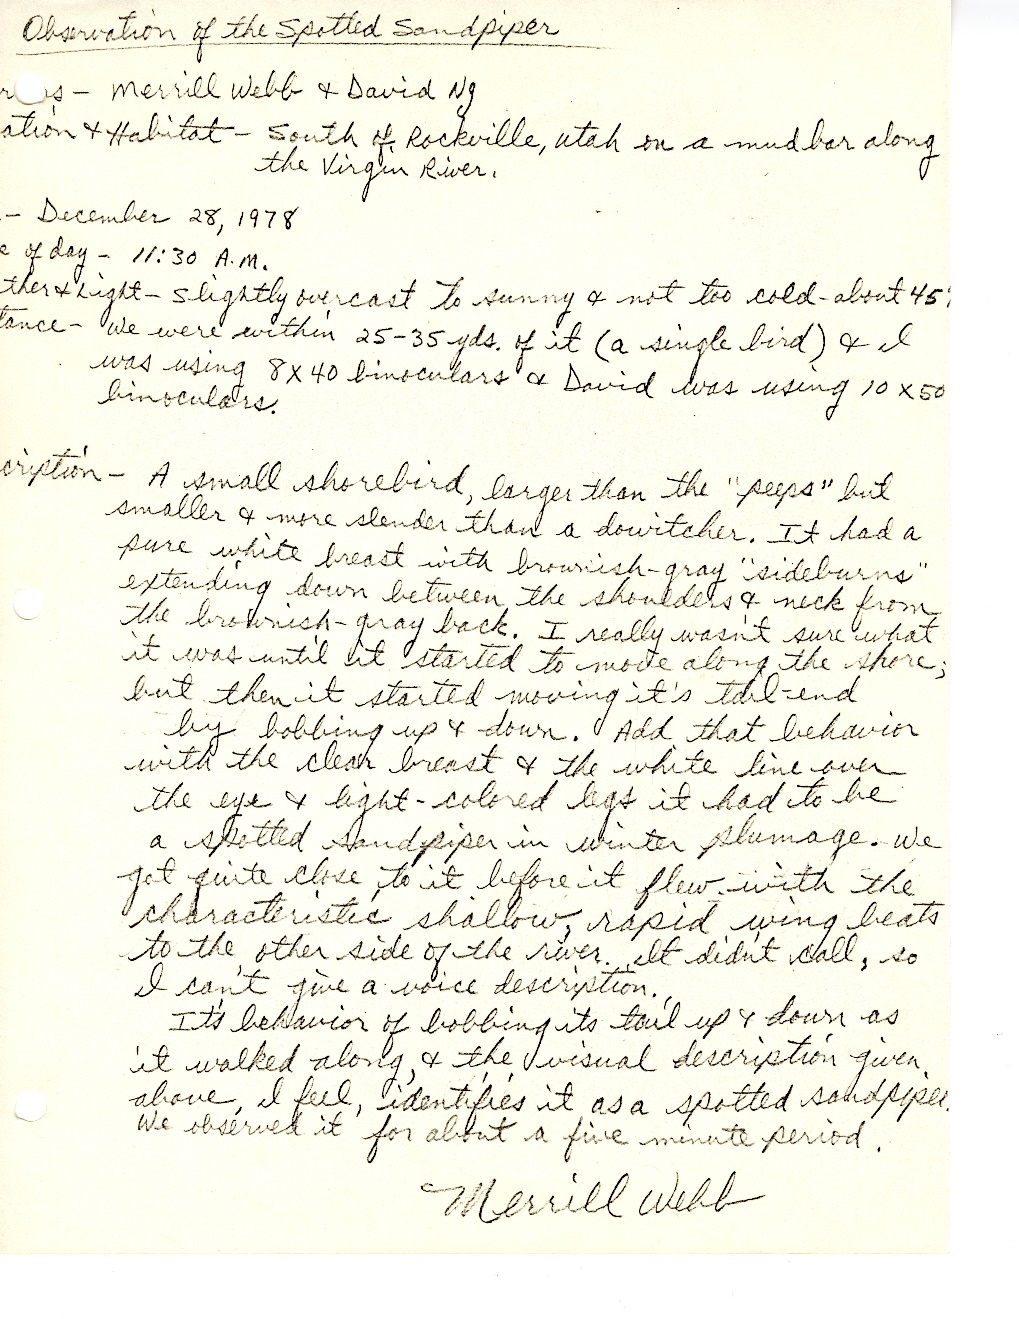 Observation of the Spotted Sandpiper
Merrill Webb & David Ng
ation & Habitat - South of Rockville, Utah on a mud bar along
the Virgin River.
- December 28, 1978
e of day - 11:30 A.M.
ther & Light - Slightly overcast to sunny & not too cold - about 45°
tance - We were within 25-35 yds. of it (a single bird) & I
was using 8X40 binoculars & David was using 10 X 50
binoculars.
cription - A small shorebird, larger than the "peeps" but
smaller & more slender than a dowitcher. It had a
pure white breast with brownish-gray "sideburns"
extending down between the shoulders & neck from
the brownish-gray back. I really wasn't sure what
it was until it started to move along the shore;
but then it started moving it's tail-end
by bobbing up & down. Add that behavior
with the clear breast & the white line over
the eye & light-colored legs it had to be
a spotted sandpiper in winter plumage. We
got quite close to it before it flew with the
characteristic shallow, rapid wing beats
to the other side of the river. It didn't call, so
I can't give a voice description.
It's behavior of bobbing its tail up & down as
it walked along, & the visual description given
above, I feel, identifies it as a spotted sandpiper.
We observed it for about a five minute period.
Merrill Webb